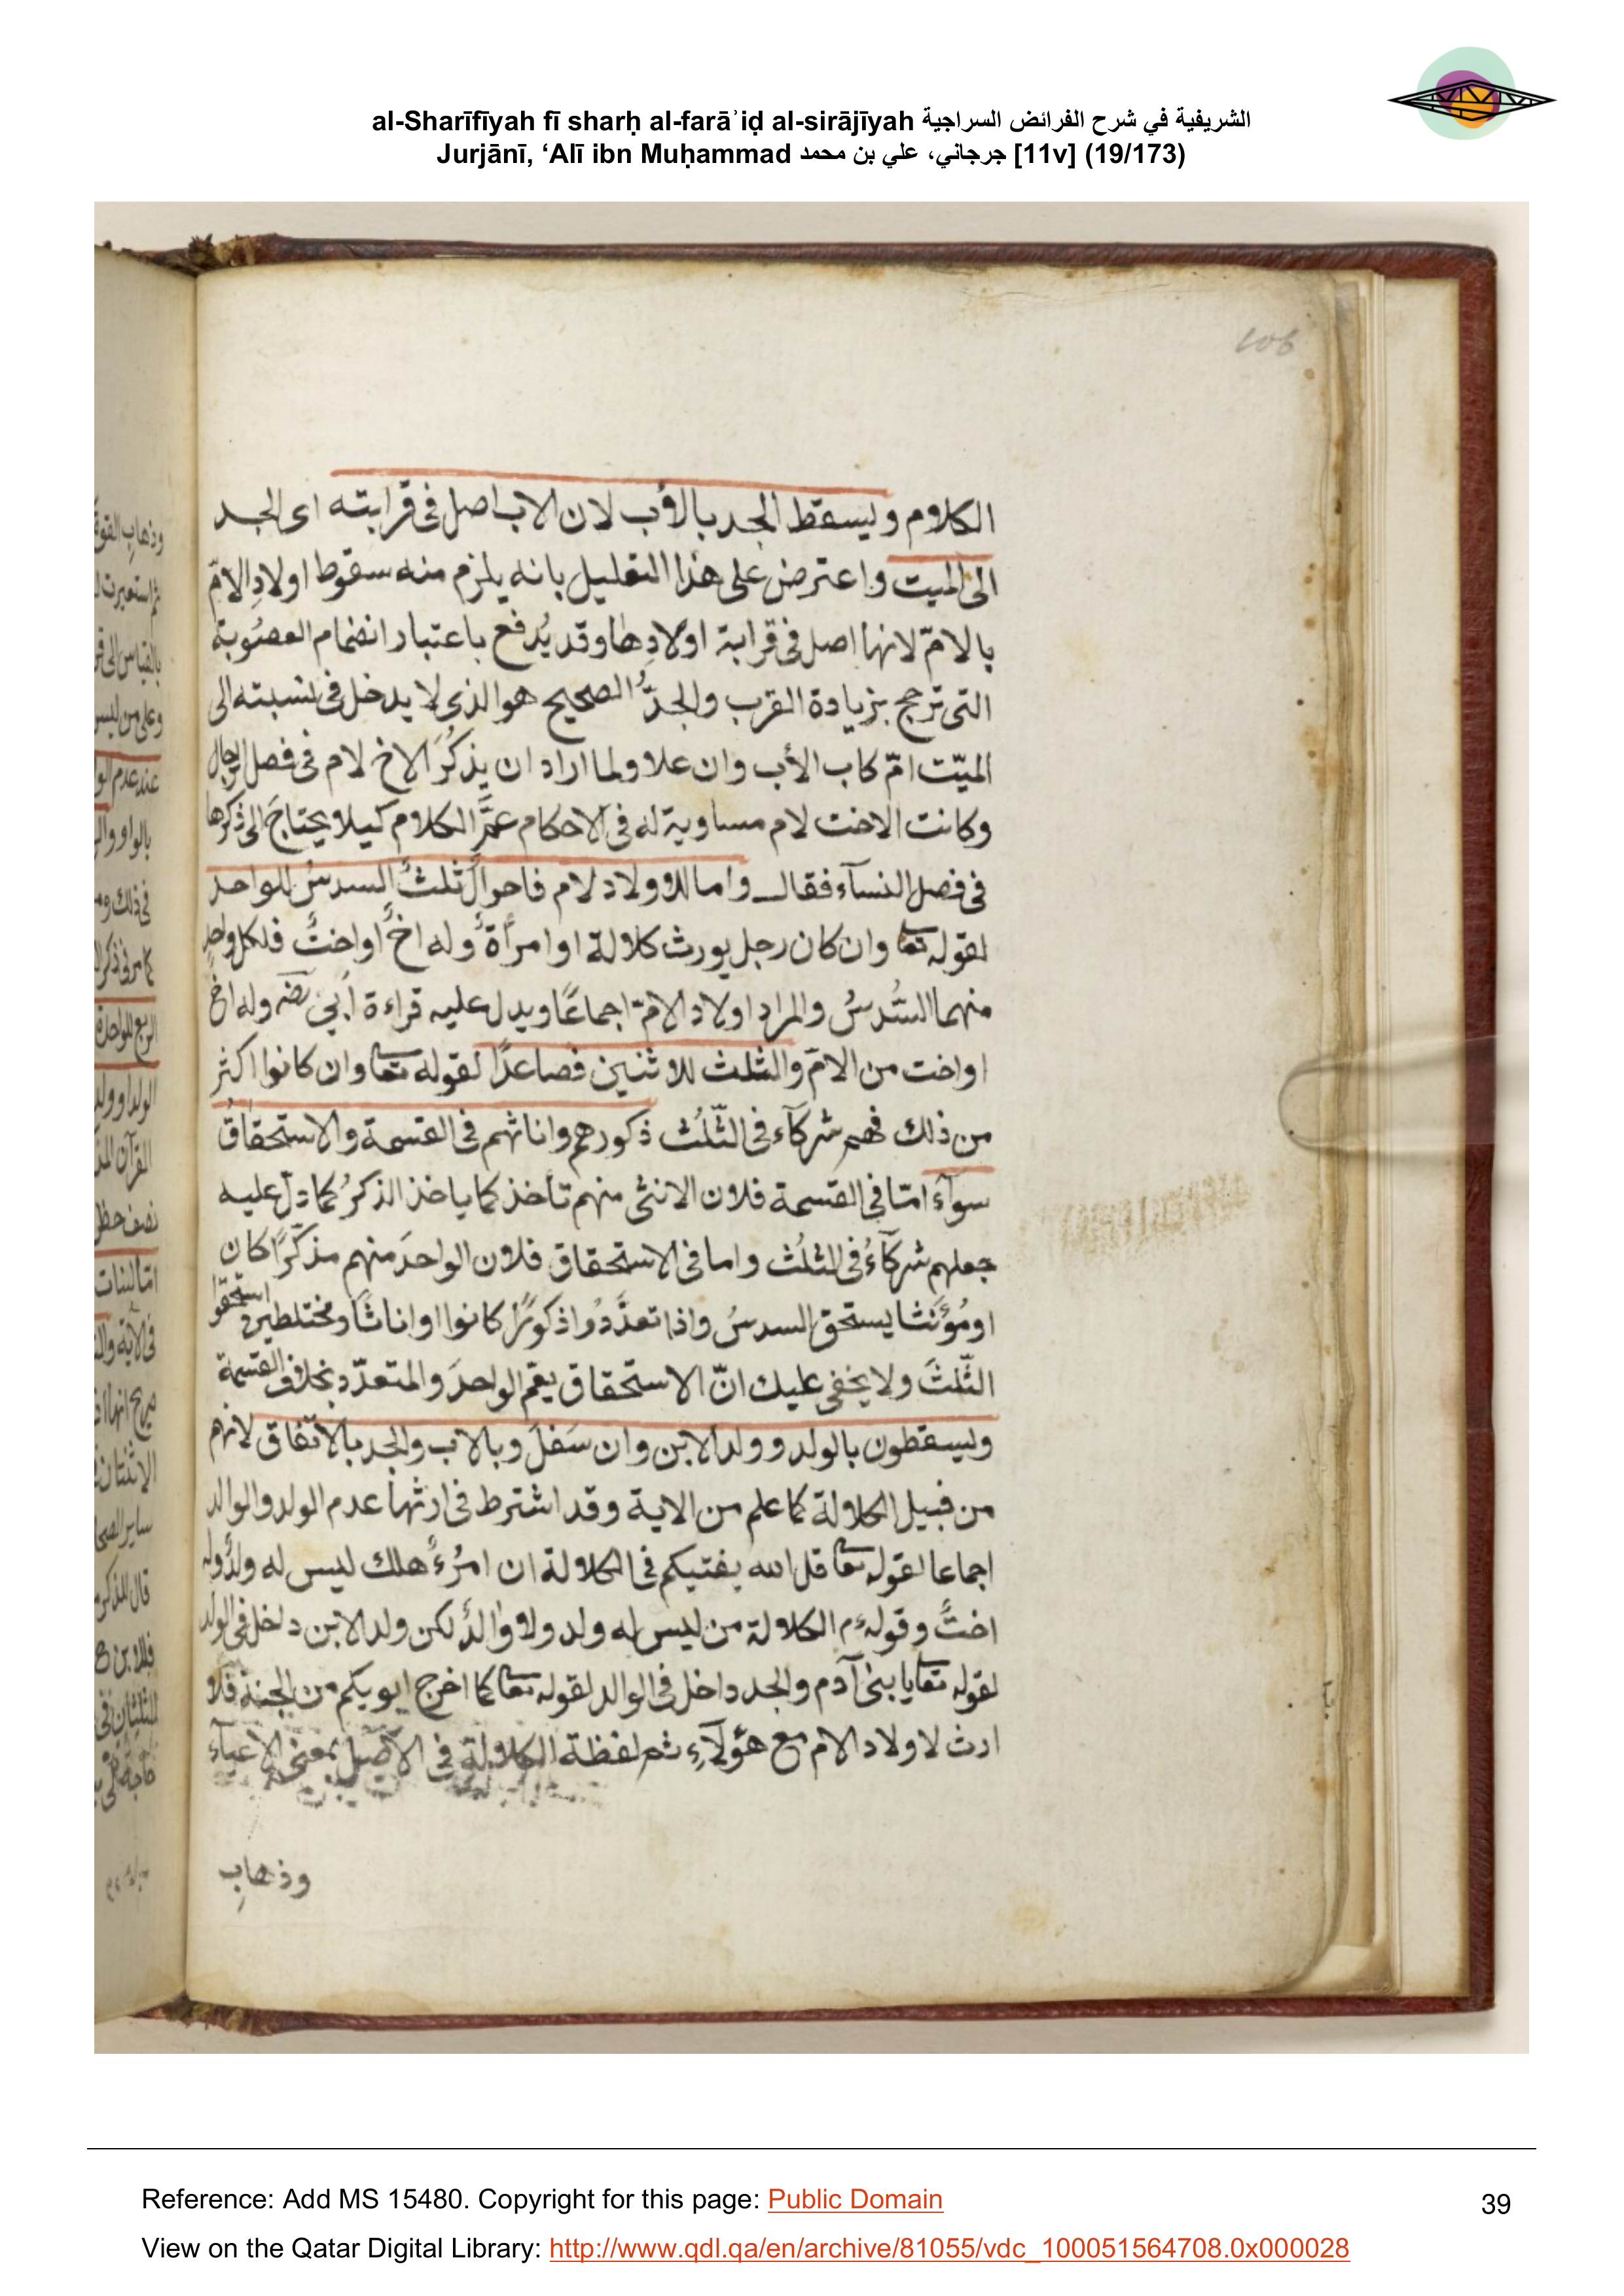 al-Sharīfīyah fī sharḥ al-farāʾiḍ al-sirājīyah الشريفية في شرح الفرائض السراجية
Jurjānī, ‘Alī ibn Muḥammad جرجاني، علي بن محمد [11v] (19/173)
106
الكلام ويسقط الجد بالأب لان الاب اصل فى قرابته اى الجد
الى الميت واعترض على هذا التعليل بانه يلزم منه سقوط اولادِ الامّ
بالامّ لانها اصل فى قرابة اولادِها وقد يُدفع باعتبار انضمام العصُوبة
التى ترجح بزيادة القرب والجدُّ الصحيح هو الذى لا يدخل فى نسبته الى
الميّت امّ كاب الأب وان علا ولما اراد ان يذكُرَ الاخ لام فى فصل الرجال
وكانت الاخت لام مساوية له فى الاحكام عمَّمَ الكلام كيلا يحتاجَ الى ذكرها
فى فصل النسآء فقال واما لاولاد لام فاحوالٌ ثلثٌ السدسُ للواحد
لقوله تعا وان كان رجل يورث كلالة او امرأةٌ وله اخٌ او اختٌ فلكل واحدٍ
منهما السُّدسُ والمراد اولاد الامّ اجماعًا ويدل عليه قراءة اُبي رضه وله اخ
او اخت من الامّ والثلث للاثنين فصاعدًا لقوله تعا وان كانوا اكثر
من ذلك فهم شركآء فى الثّلُث ذكورهم واناثهم فى القسمة والاستحقاقُ
سوآءٌ امّا فى القسمة فلان الانثى منهم تأخذ كما ياخذ الذكرُ كما دلّ عليه
جعلهم شركآءُ فى الثلُث واما فى الاستحقاق فلان الواحدَ منهم مذكّرًا كان
او مُؤنثا يستحق السدسُ واذا تعدَّدُوا ذكورًا كانوا او اناثًا ومختلطين استحقوا
الثّلثَ ولا يخفى عليك انّ الاستحقاق يعم الواحدَ والمتعدّد بخلاف القسمة
ويسقطون بالولد وولد الابن وان سَفلَ وبالاب والجد بالاتفاق لانهم
من قبيل الكلالة كما علم من الاية وقد اشترط فى ارثها عدم الولد والوالد
اجماعا لقوله تعا قل الله يفتيكم فى الكلالة ان امرُءٌ هلك ليس له ولدٌ وله
اختٌ وقوله ءم الكلالة من ليس له ولد ولا والدٌ لكن ولد الابن داخل فى الولد
لقوله تعا يا بنى آدم والجد داخل فى الوالد لقوله تعا كما اخرج ابويكم من الجنة فلا
ارث لاولاد الام مع هؤلآءِ ثم لفظة الكلالة فى الاصل بمعنى الاعيآء
وذهابِ
Reference: Add MS 15480. Copyright for this page: Public Domain
39
View on the Qatar Digital Library: http://www.qdl.qa/en/archive/81055/vdc_100051564708.0x000028